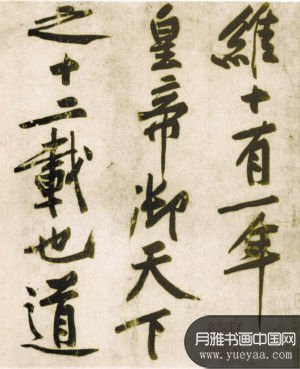 維十有一年
皇帝御天下
之十二載也道
月雅书画中国网
www.yueyaa.com